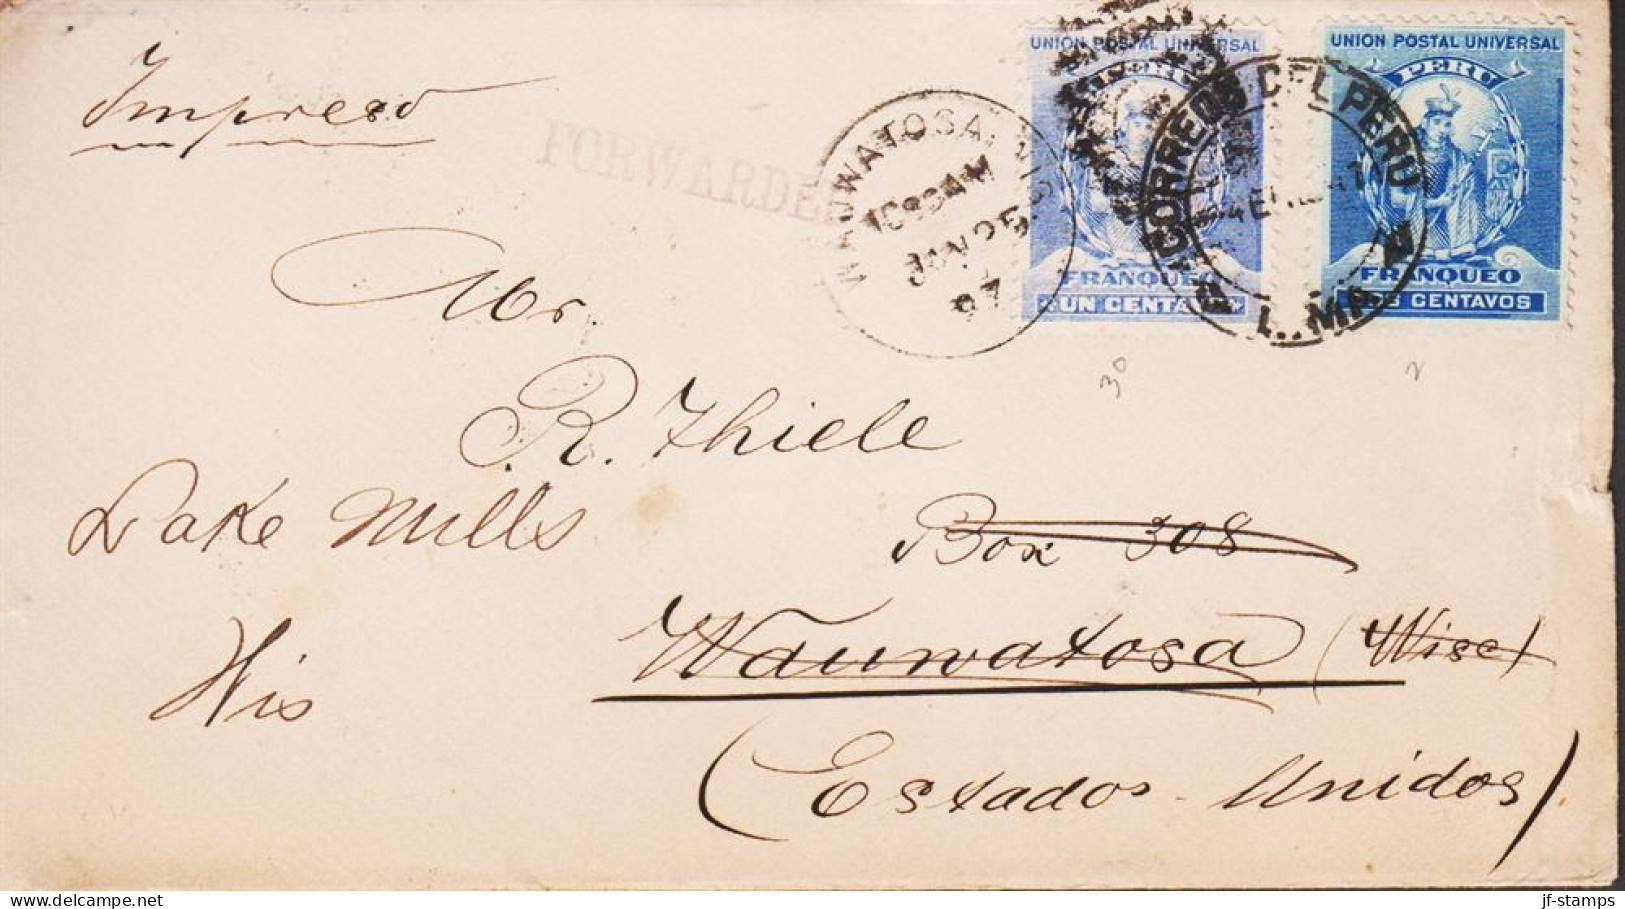 Impreso
FORWARDED
WAUWATOSA,
1030AM
JAN 25
97
UNION POSTAL UNIVERSAL
PERU
FRANQUEO
UN CENTAVO
CORREOS DEL PERU
LIMA
UNION POSTAL UNIVERSAL
PERU
FRANQUEO
DOS CENTAVOS
30
2
Mr.
R. Thiele
Lake Mills
Wis
Box 308
Wauwatosa (Wisc)
(Estados Unidos)
jf-stamps